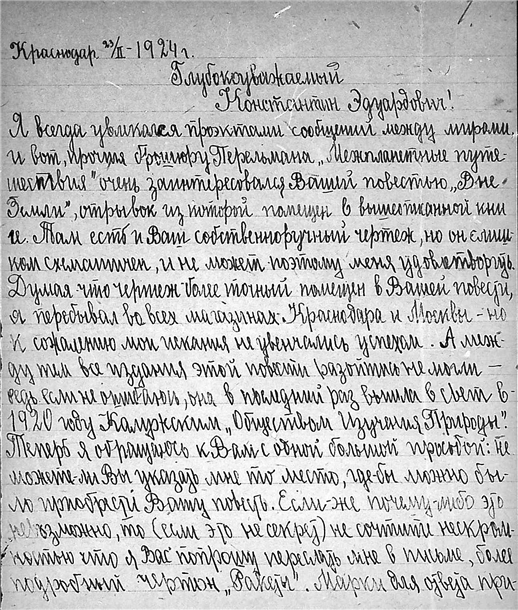 Краснодар. 23/II-1924 г.
Глубокоуважаемый
Константин Эдуардович!
Я всегда увлекался проэктами сообщений между мирами
и вот, прочтя брошюру Перельмана „Межпланетные путе-
шествия" очень заинтересовался Вашей повестью „Вне
Земли", отрывок из которой помещен в вышеписанной кни
ге. Там есть и Ваш собственноручный чертеж, но он слиш
ком схематичен, и не может поэтому меня удовлетворить.
Думая что чертеж более точный помещен в Вашей повести,
я перебывал во всех магазинах Краснодара и Москвы – но
к сожалению мои искания не увенчались успехом. А меж-
ду тем все издания этой повести разойтись не могли –
ведь если не ошибаюсь, она в последний раз вышла в свет в
1920 году Калужским „Обществом Изучения Природы"
Теперь я обращаюсь к Вам с одной большой просьбой: не
можете-ли Вы указать мне то место, где-бы можно бы-
ло приобрести Вашу повесть. Если-же почему-либо это
невозможно, то (если это не секрет) не сочтите нескром-
ностью что я Вас попрошу переслать мне в письме, более
подробный чертеж „Ракеты". Марки для ответа при-